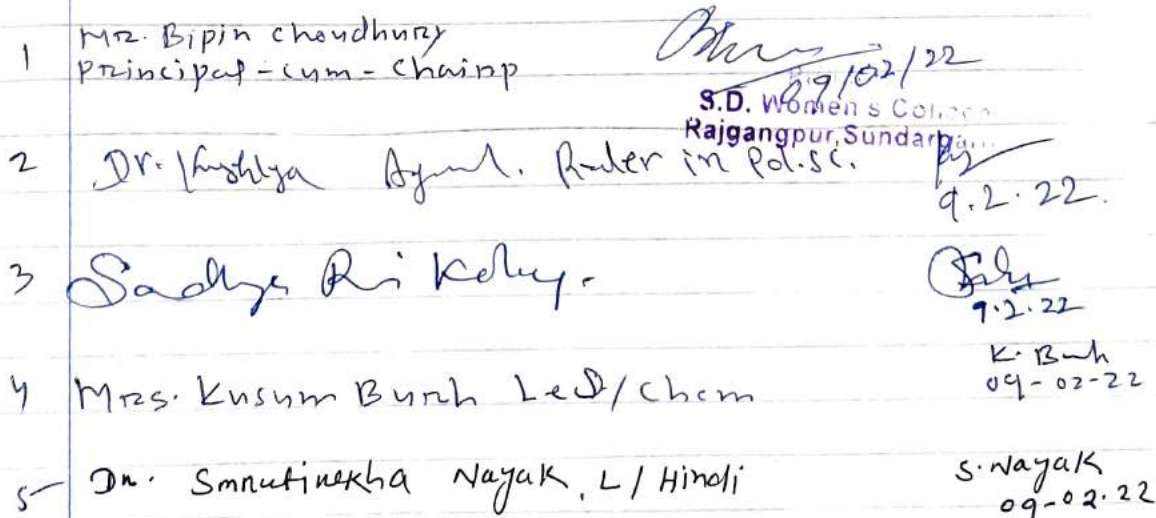 1 Mr. Bipin Choudhury
Principal-cum-Chairp
09/02/22
S.D. Women's
Rajgangpur, Sundarga
2 Dr. Agul. Reader in Pol.sc.
9.2.22.
3
9.2.22
4 Mrs. Kusum Burh Lect/Chem
K. Burh
09-02-22
5 Dr. Smrutirekha Nayak, L/Hindi
S. Nayak
09-02.22